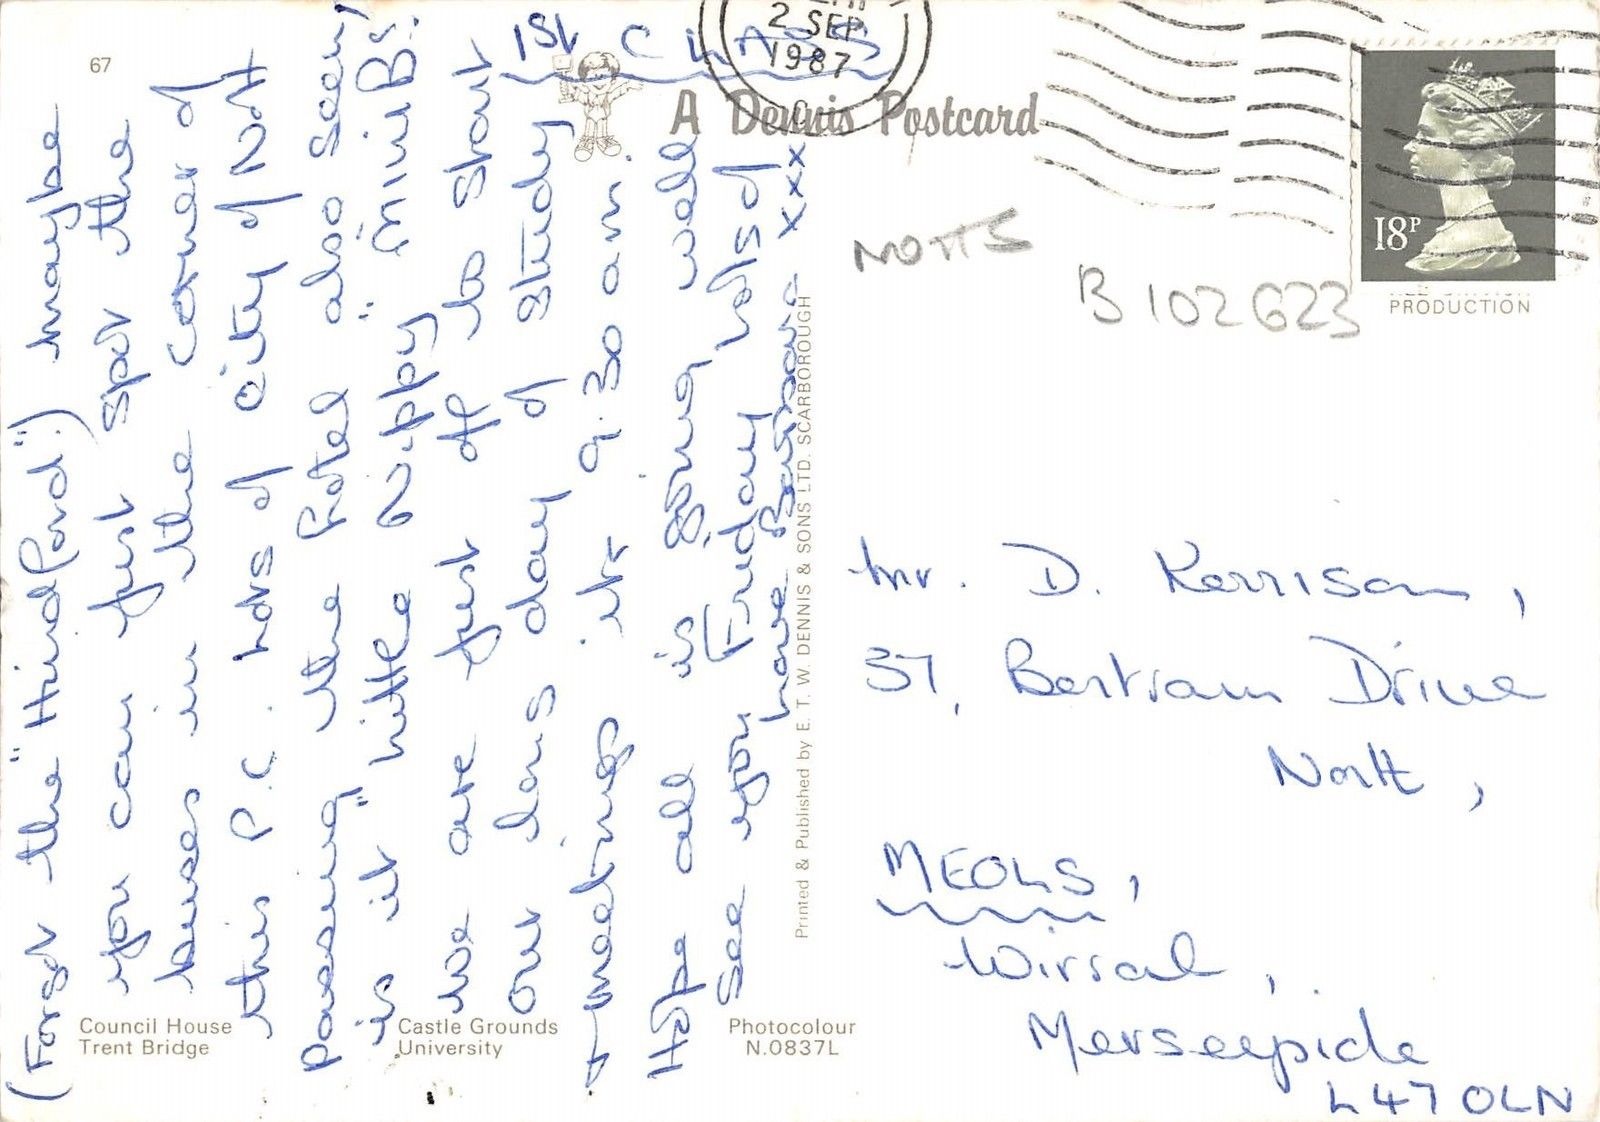 67
1ST CLASS
2 SEP
1987
A Dennis Postcard
18P
PRODUCTION
NOTTS
B 102623
(Forgot the "Hindford"!) maybe
you can just spot the
buses in the corner of
this P.C. Lots of city of Nott
passing the hotel also seen,
is it "little Nippy" "Mini Bs".
We are just off to start
our long day of study
+ meetings its 9.30 am.
Hope all is going well
See you Friday lots of
love xxx
Printed & Published by E. T. W. DENNIS & SONS LTD. SCARBOROUGH
Mr. D. Kerrison,
37, Bertram Drive
North,
MEOLS,
Wirral,
Merseyside
L47 0LN
Council House
Trent Bridge
Castle Grounds
University
Photocolour
N.0837L